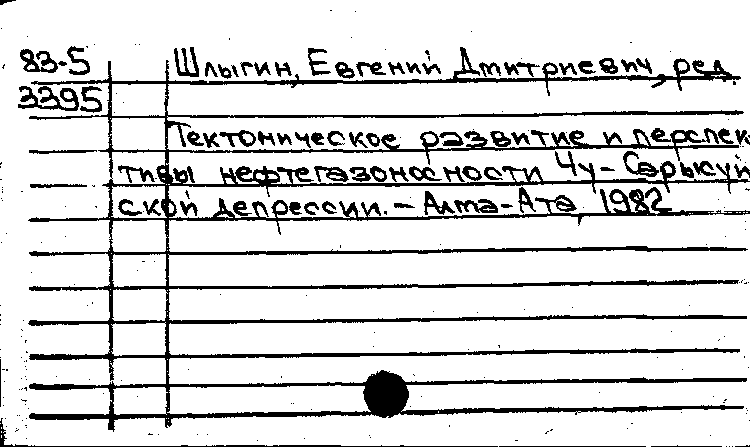 83-5 Шлыгин, Евгений Дмитриевич, ред.
3395
Тектоническое развитие и перспек
тивы нефтегазоносности Чу-Сарысуй
ской депрессии. - Алма-Ата, 1982